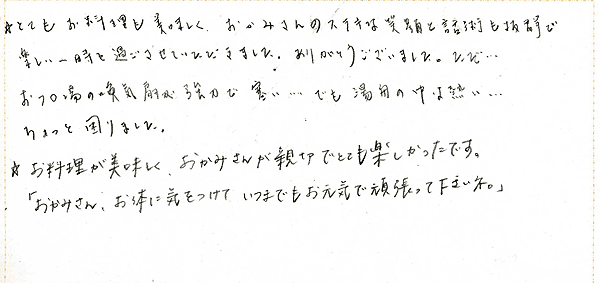 ☆とてもお料理も美味しく、おかみさんのステキな笑顔と話術も抜群で
楽しい一時を過ごさせていただきました。ありがとうございました。ただ…
おフロ場の換気扇が強力で寒い…でも湯舟の中は熱い…
ちょっと困りました。
☆お料理が美味しく、おかみさんが親切でとても楽しかったです。
「おかみさん、お体に気をつけていつまでもお元気で頑張って下さいネ。」